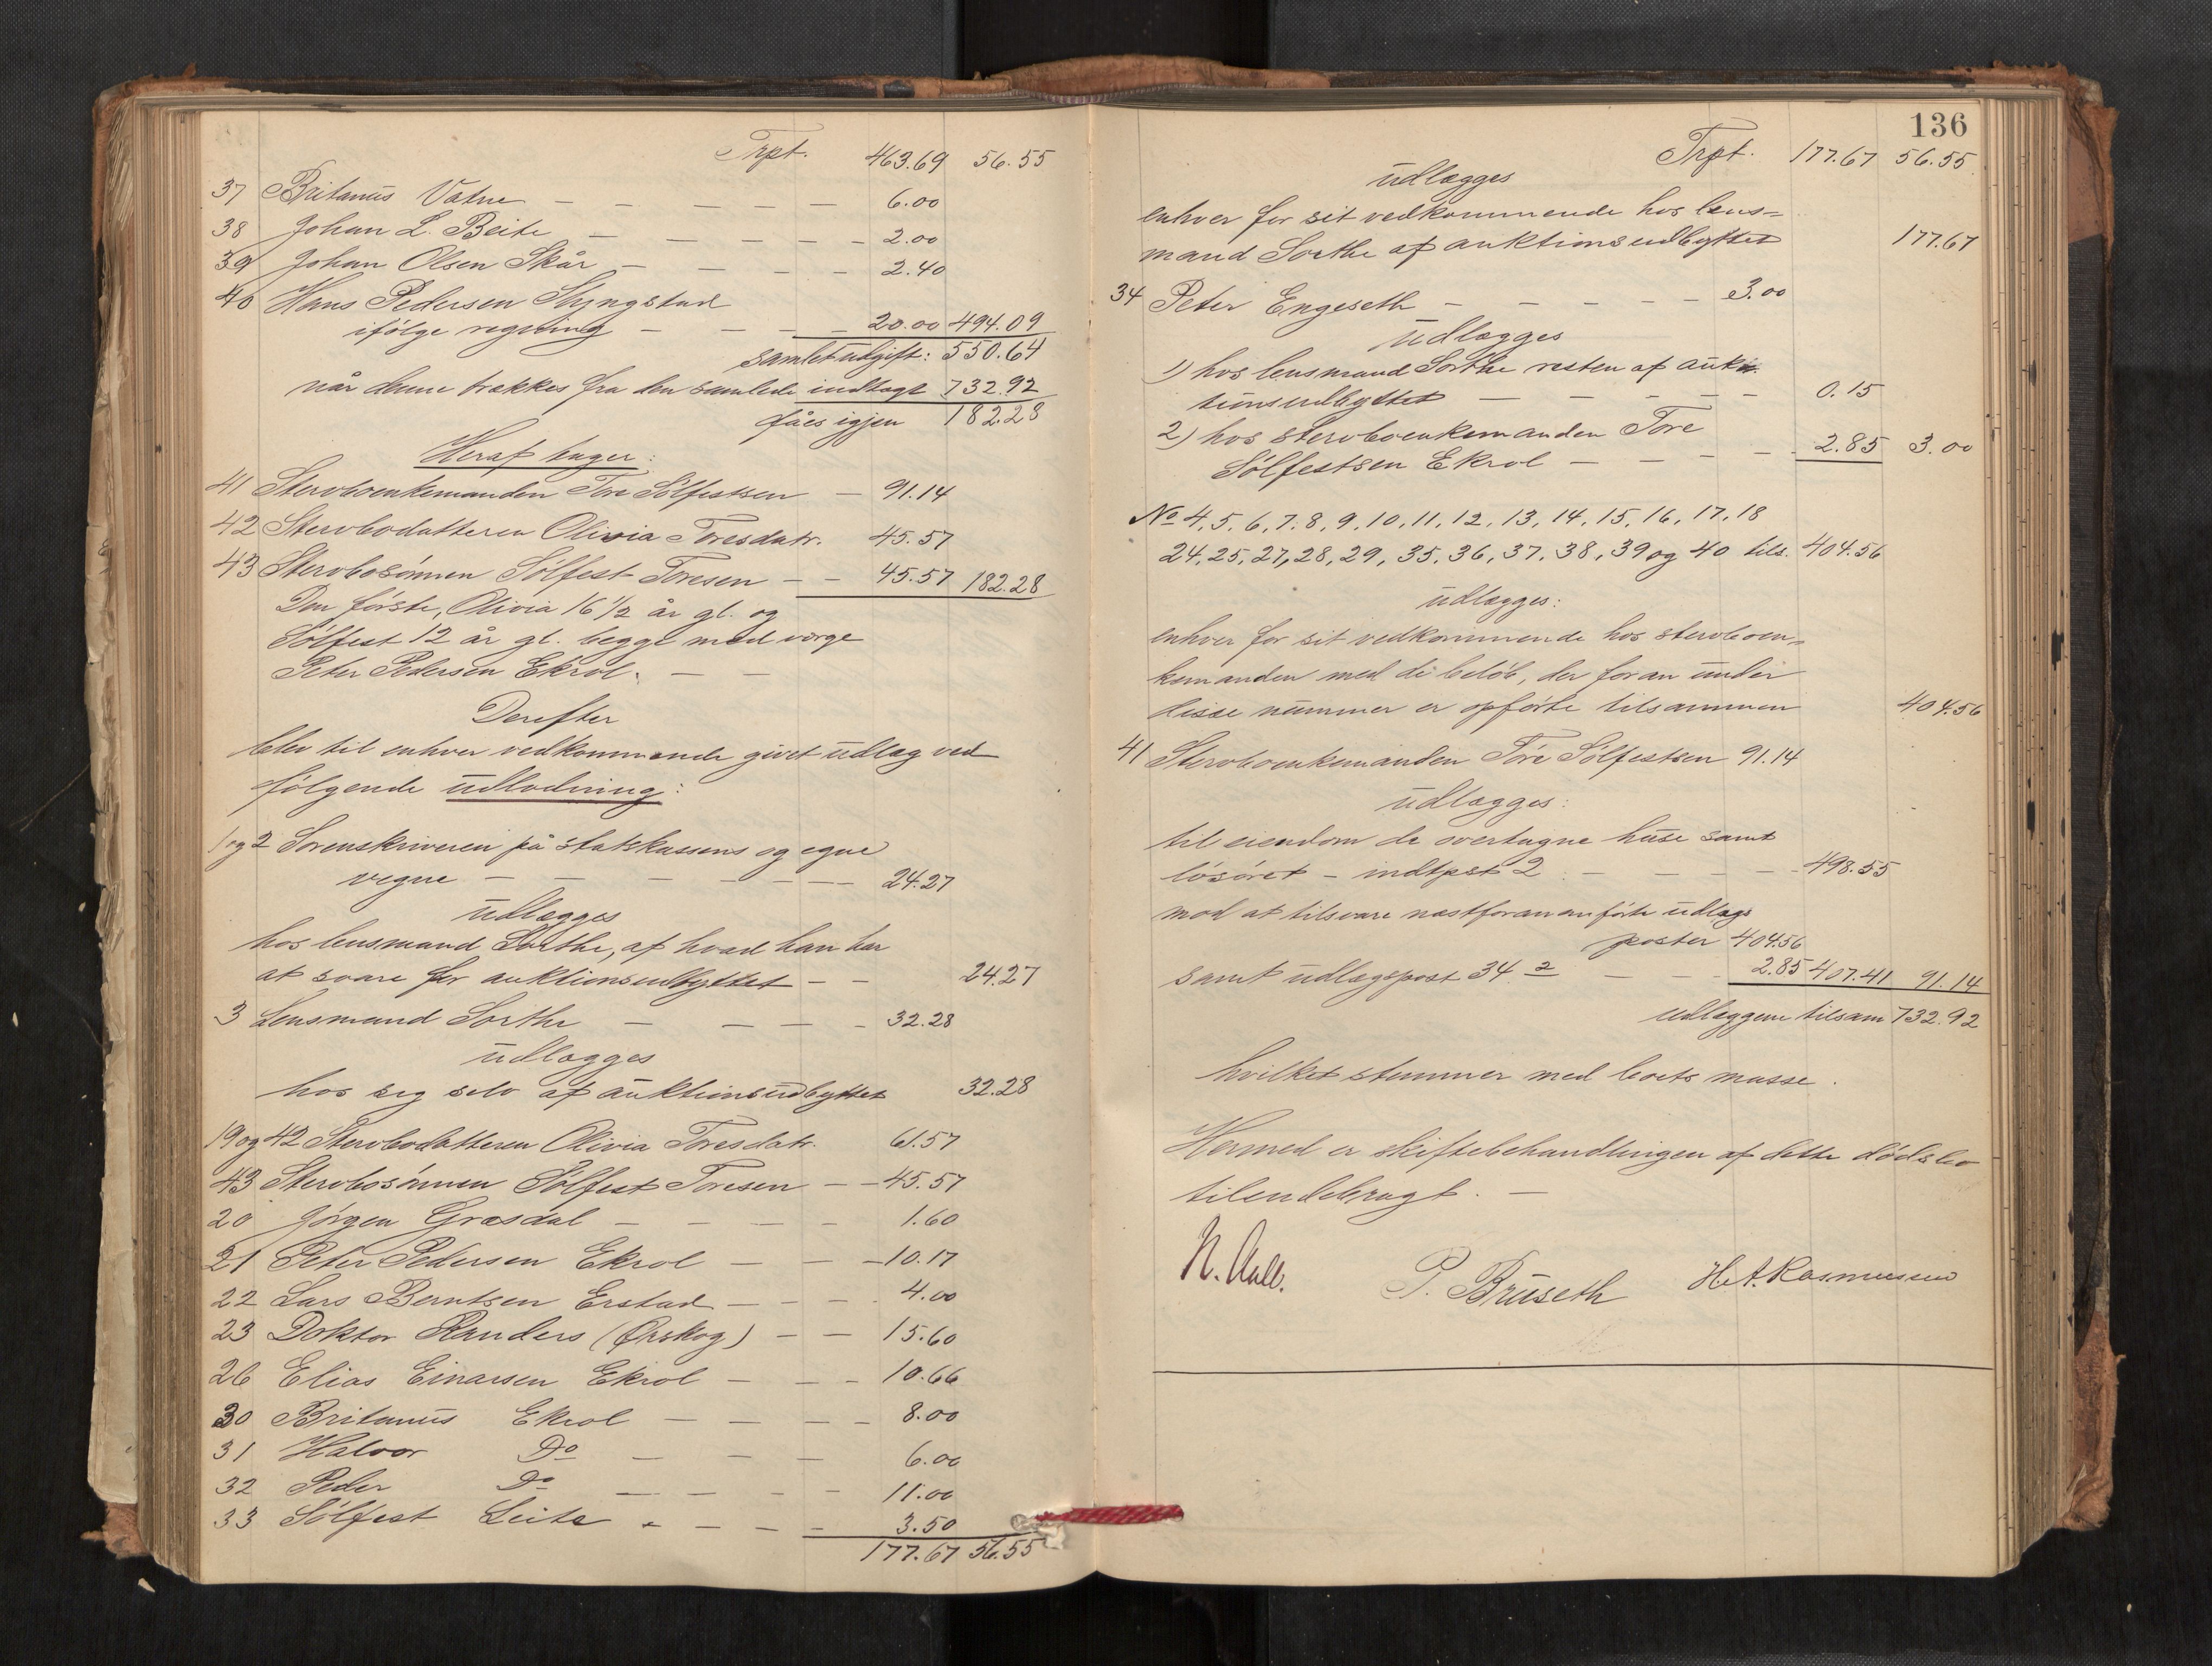 Trpt. 463.69 56.55
37 Britanus Vatne — — — — — 6.00
38 Johan L. Beite — — — — — 2.00
39 Johan Olsen Skår — — — — 2.40
40 Hans Pedersen Slyngstad
ifölge regning — — — — 20.00 494.09
samlet udgift: 550.64
når denne trækkes fra den samlede indtægt 732.92
fåes igjen 182.28
Heraf tager:
41 Stervboenkemanden Tore Sölfestsen — 91.14
42 Stervbodatteren Olivia Toresdatr. 45.57
43 Stervbosönnen Sölfest Toresen — — 45.57 182.28
Den förste, Olivia 16 1/2 år gl. og
Sölfest 12 år gl. begge med værge
Peter Pedersen Ekrol. — —
Derefter
blev til enhver vedkommende givet udlæg ved
fölgende udlodning:
1 og 2 Sorenskriveren på statskassens og egne
vegne — — — — — — 24.27
udlægges
hos lensmand Sorthe, af hvad han har
at svare for auktionsudbyttet — — 24.27
3 Lensmand Sorthe — — — — 32.28
udlægges
hos sig selv af auktionsudbyttet 32.28
19 og 42 Stervbodatteren Olivia Toresdatr. 61.57
43 Stervbosönnen Sölfest Toresen — — 45.57
20 Jörgen Græsdal — — — — 1.60
21 Peter Pedersen Ekrol — — — 10.17
22 Lars Berntsen Erstad — — — 4.00
23 Doktor Randers (Ørskog) — — 15.60
26 Elias Einarsen Ekrol — — — 10.66
30 Britanus Ekrol — — — — 8.00
31 Halvor Do — — — 6.00
32 Peder Do — — — — 11.00
33 Sölfest Leite — — — — 3.50
177.67 56.55
136
Trpt. 177.67 56.55
udlægges
enhver for sit vedkommende hos lens-
mand Sorthe af auktionsudbyttet 177.67
34 Peter Engeseth — — — — — 3.00
udlægges
1) hos lensmand Sorthe resten af auk-
tionsudbyttet — — — — — 0.15
2) hos stervboenkemanden Tore
Sölfestsen Ekrol — — — — 2.85 3.00
No 4, 5, 6, 7, 8, 9, 10, 11, 12, 13, 14, 15, 16, 17, 18
24, 25, 27, 28, 29, 35, 36, 37, 38, 39 og 40 tils. 404.56
udlægges:
enhver for sit vedkommende hos stervboen-
kemanden med de belöb, der foran under
disse nummer er opförte tilsammen 404.56
41 Stervboenkemanden Tore Sölfestsen 91.14
udlægges:
til eiendom de overtagne huse samt
lösöret - indtpst 2 — — — — 498.55
mod at tilsvare næstforananförte udlægs
poster 404.56
samt udlægspost 34 2 — — 2.85 407.41 91.14
udlæggene tilsam 732.92
hvilket stemmer med boets masse.
Hermed er skiftebehandlingen af dette dödsbo
tilendebragt. —
N. Aall. P. Bruseth H. A. Rasmussen